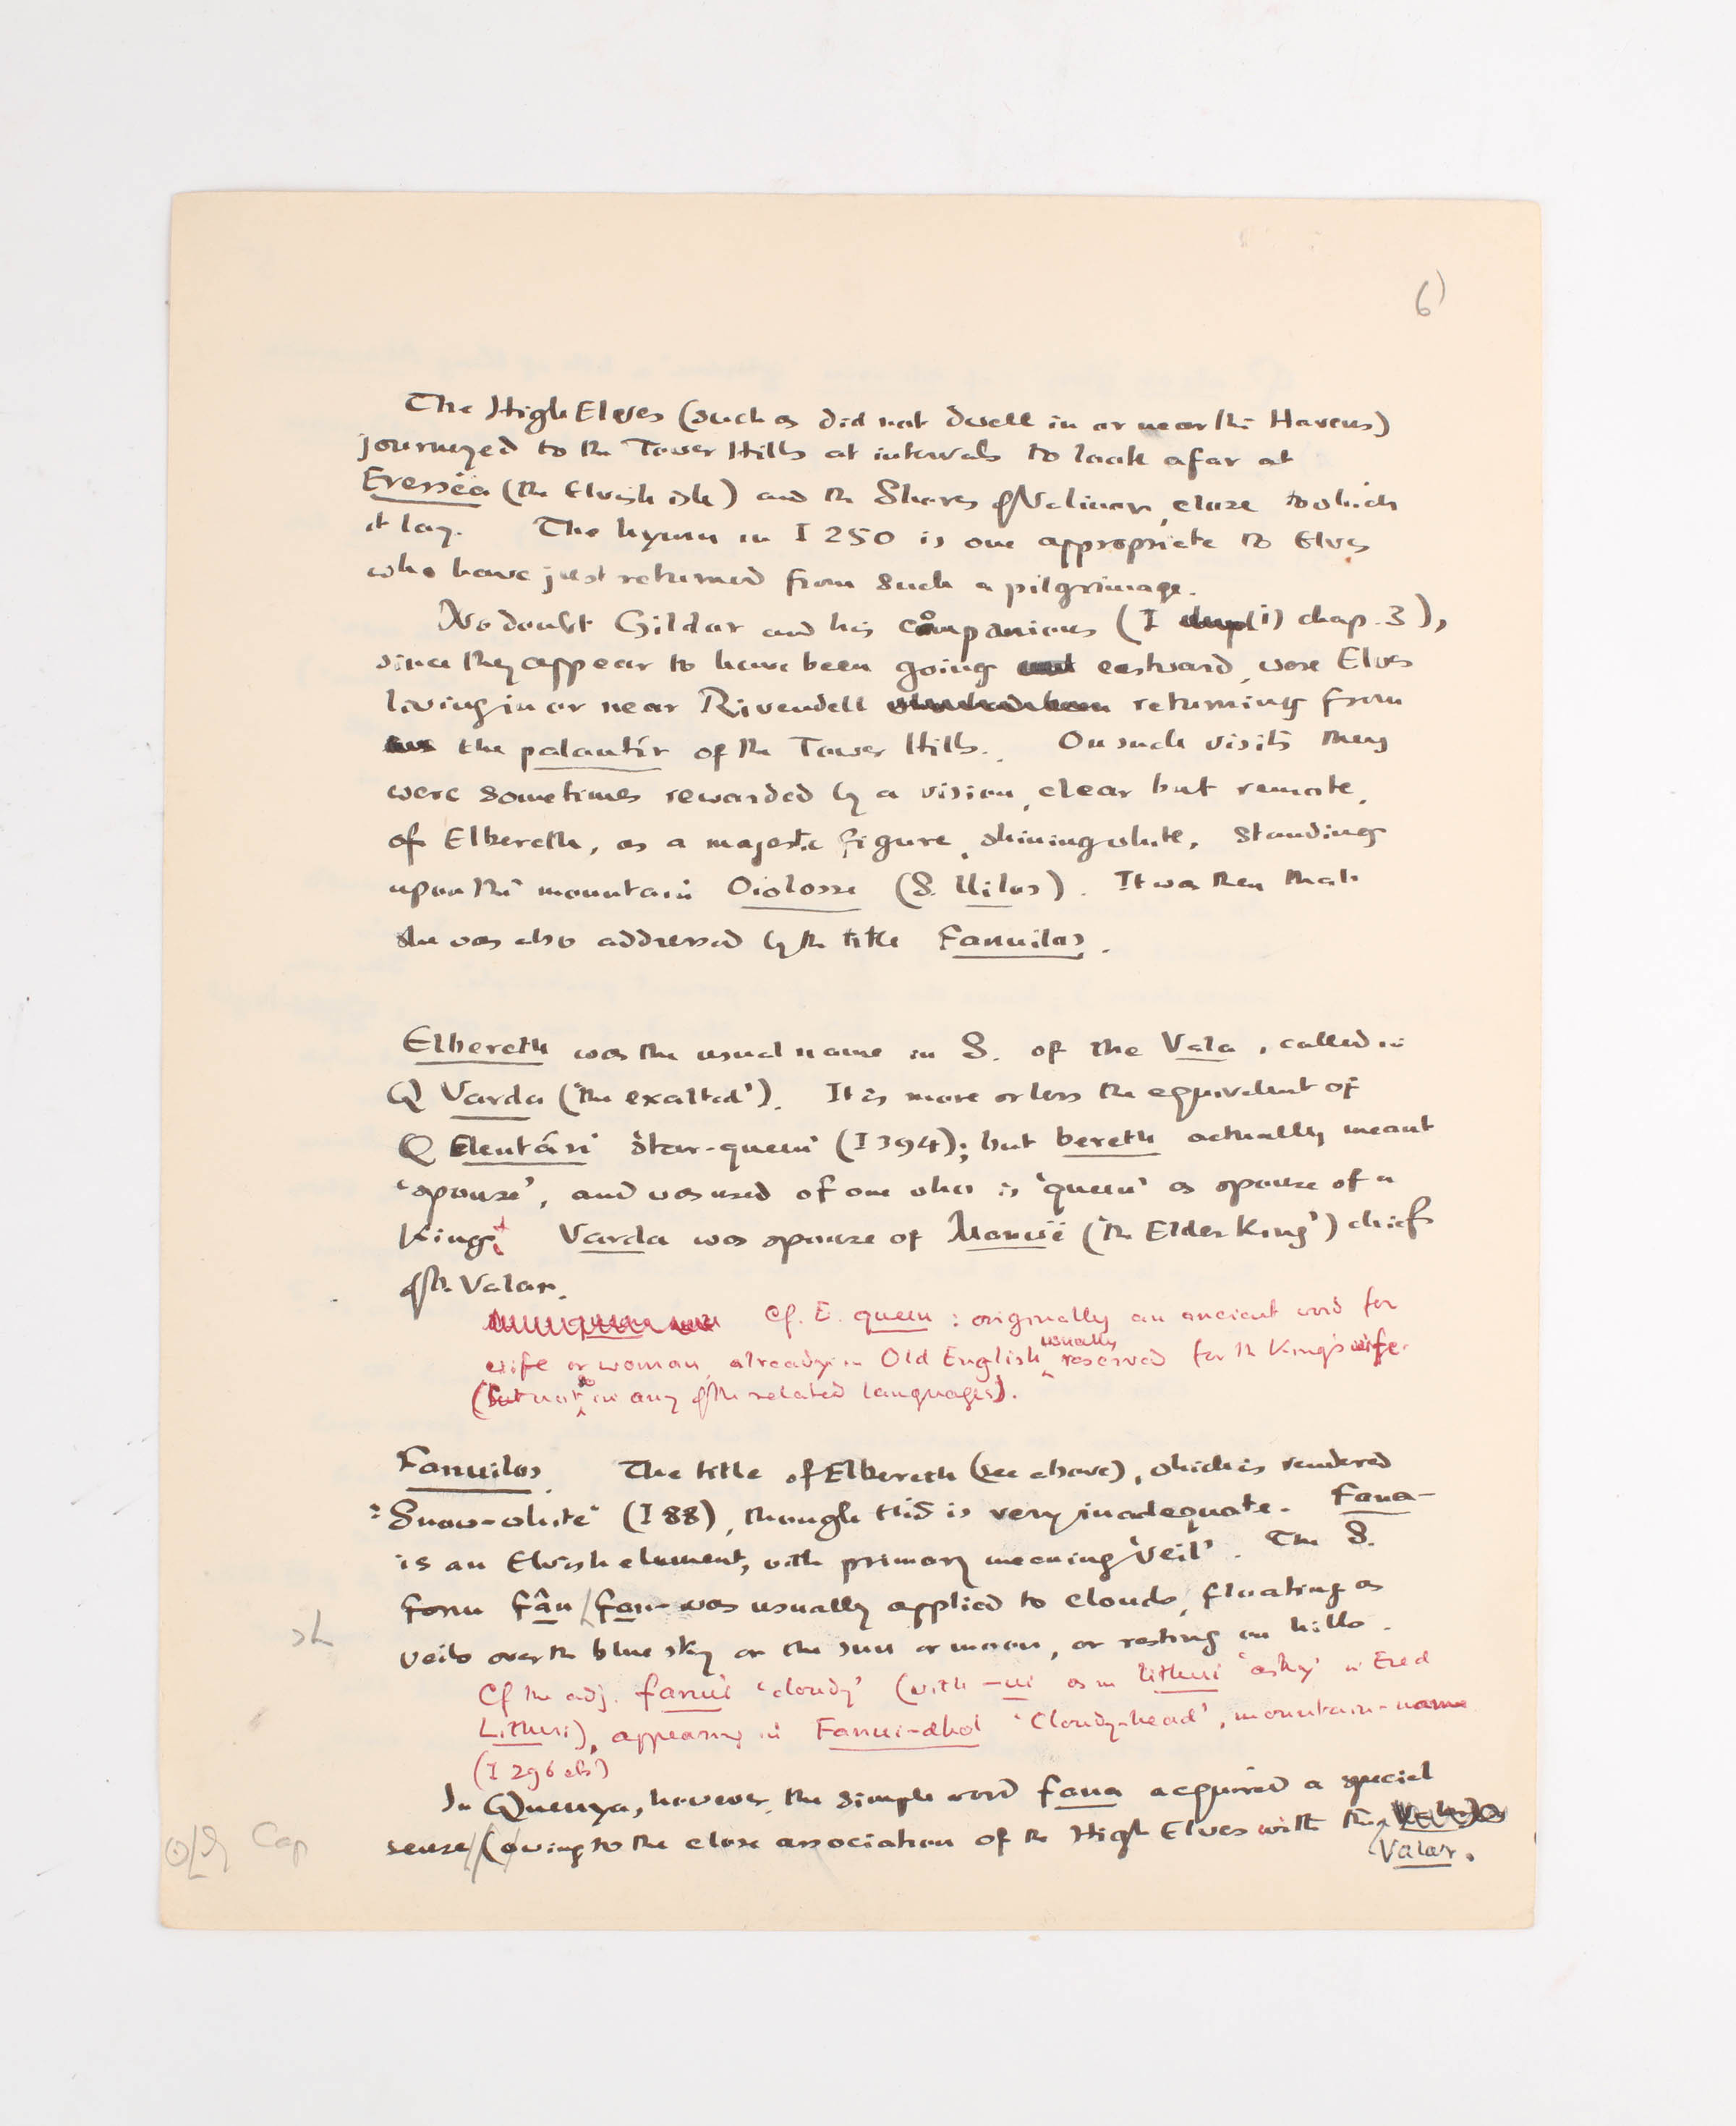 6)
The High Elves (such as did not dwell in or near the Havens)
journeyed to the Tower Hills at intervals to look afar at
Eressëa (the Elvish isle) and the Shores of Valinor, close to which
it lay. The hymn in I 250 is one appropriate to Elves
who have just returned from such a pilgrimage.
No doubt Gildor and his companions (I (i) chap. 3),
since they appear to have been going eastward, were Elves
living in or near Rivendell returning from
the palantír of the Tower Hills. On such visits they
were sometimes rewarded by a vision, clear but remote,
of Elbereth, as a majestic figure, shining white, standing
upon the mountain Oiolosse (S. Uilos). It was then that
she was also addressed by the title Fanuilos.
Elbereth was the usual name in S. of the Vala, called in
Q Varda ('the exalted'). It is more or less the equivalent of
Q Elentári 'Star-queen' (I 394); but bereth actually meant
'spouse', and was used of one who is 'queen' as spouse of a
King.+ Varda was spouse of Manwë ('the Elder King') chief
of the Valar.
Cf. E. queen : originally an ancient word for
wife or woman, already in Old English usually reserved for the King's wife.
(but not so in any of the related languages).
Fanuilos. The title of Elbereth (see above), which is rendered
"Snow-white" (I 88), though this is very inadequate. Fana-
is an Elvish element, with primary meaning 'veil'. The S.
form fân / fan- was usually applied to clouds, floating as
veils over the blue sky or the sun or moon, or resting on hills.
Cf the adj. fanui 'cloudy' (with -ui as in lithui 'ashy' in Ered
Lithui), appearing in Fanui-dhol 'Cloudyhead', mountain-name
(I 296 etc)
In Quenya, however, the simple word fana acquired a special
sense (owing to the close association of the High Elves with the
Cap
Valar.